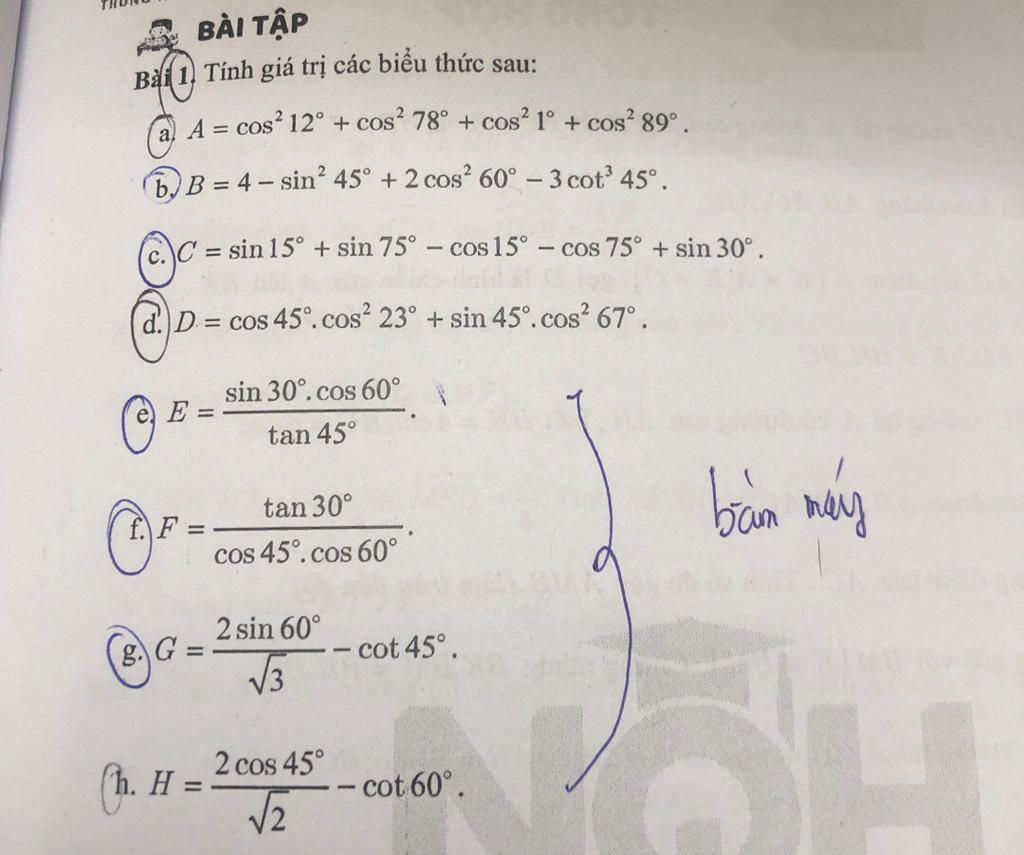 BÀI TẬP
Bài 1. Tính giá trị các biểu thức sau:
a. A = cos² 12° + cos² 78° + cos² 1° + cos² 89°.
b. B = 4 − sin² 45° + 2 cos² 60° − 3 cot³ 45°.
c. C = sin 15° + sin 75° − cos 15° − cos 75° + sin 30°.
d. D = cos 45°. cos² 23° + sin 45°. cos² 67°.
e. E = (sin 30°. cos 60°) / (tan 45°).
f. F = (tan 30°) / (cos 45°. cos 60°).
bấm máy
g. G = (2 sin 60°) / √3 − cot 45°.
h. H = (2 cos 45°) / √2 − cot 60°.
HQN